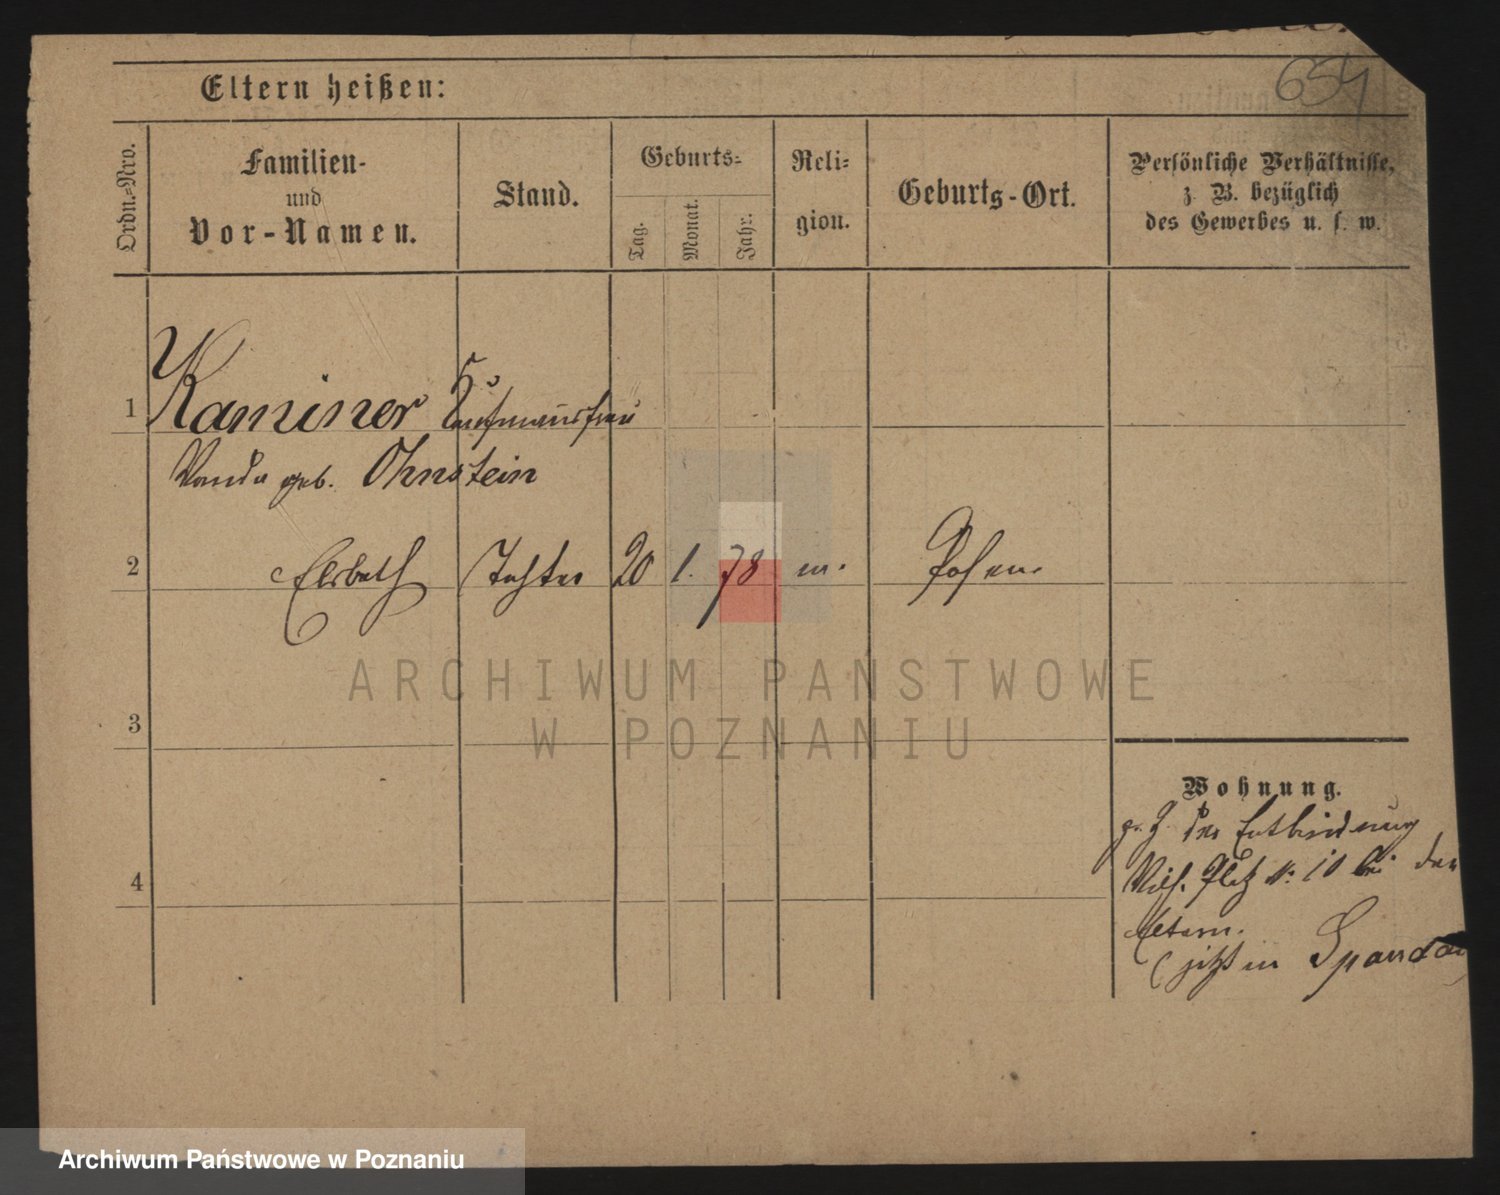 654
Eltern heißen:
Ordn.=Nro.
Familien-
und
Vor-Namen.
Stand.
Geburts=
Tag.
Monat.
Jahr.
Reli=
gion.
Geburts-Ort.
Persönliche Verhältnisse,
z. B. bezüglich
des Gewerbes u. s. w.
1 Kaminer Kaufmannsfrau
Wanda geb. Ohnstein
2 Elsbeth Tochter 20 1. 78 m. Posen.
3
4
Wohnung.
z. Z. der Entbindung
Wilh. Platz N: 10 bei den
Eltern.
jetzt in Spandau
ARCHIWUM PAŃSTWOWE
W POZNANIU
Archiwum Państwowe w Poznaniu